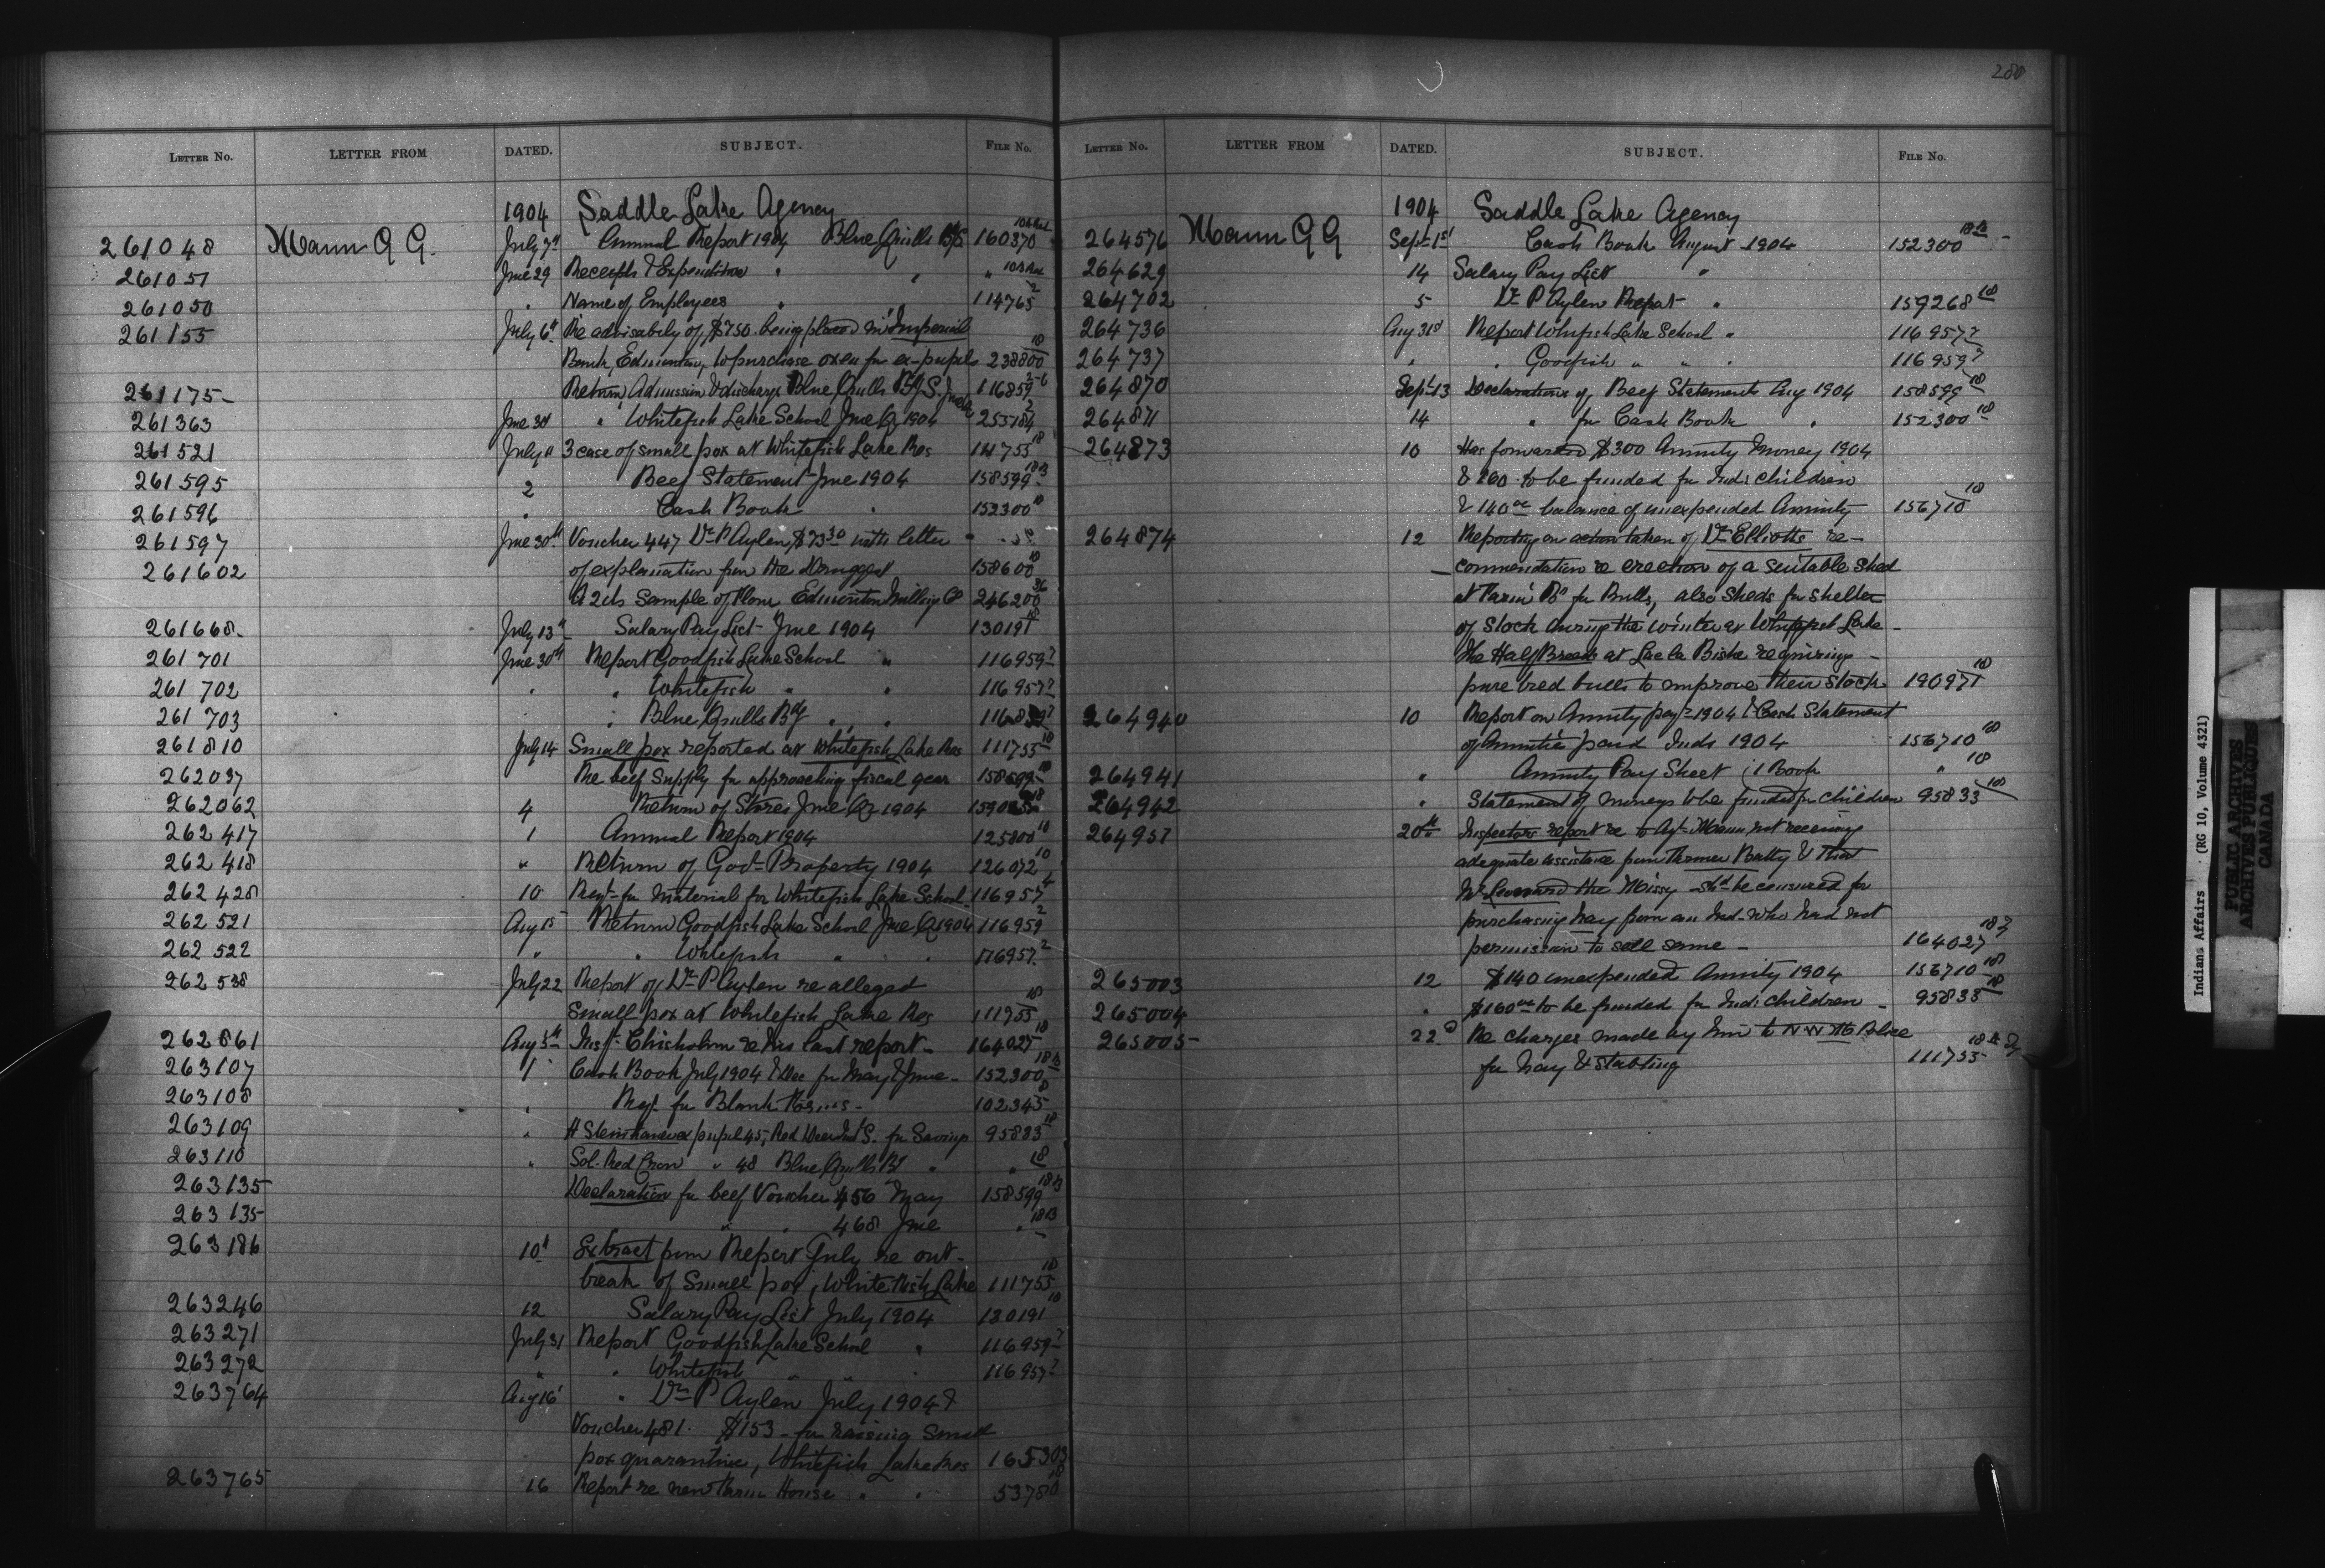 280
LETTER No. LETTER FROM DATED. SUBJECT. FILE No.
1904 Saddle Lake Agency
261048 Mann G G. July 7th Annual Report 1904 Blue Quills B/S 160370
261051 June 29 Receipts & Expenditure " " "
261050 " Name of Employees " 114765 2
261155 July 6th Re advisability of $750. being placed in Imperial
Bank, Edmonton, to purchase oxen for ex-pupils 238800 18
261175 Return Admission & discharge Blue Quills B/S. June 116859
261363 June 30 " Whitefish Lake School June Qr 1904 255184 2
261521 July 11 3 case of small pox at Whitefish Lake Res 111755 18
261595 2 Beef Statement June 1904 158599 18B
261596 " Cash Book " 152300 18
261597 June 30th Voucher 447 Dr P Aylen $73 30 with letter
261602 of explanation from the Druggist 158600 18
A 2 lb Sample of Flour Edmonton Milling Co 246200 36
261668 July 13th Salary Pay List June 1904 130191 18
261701 June 30th Report Goodfish Lake School " 116959 7
261702 " " Whitefish " " 116957 7
261703 " " Blue Quills Bdg " " 116859 7
261810 July 14 Small pox reported at Whitefish Lake Res 111755 18
262037 Re beef supply for approaching fiscal year 158599 18
262062 4 Return of Stores June Qr 1904
262417 1 Annual Report 1904 125800 18
262418 " Return of Govt Property 1904 126072 18
262428 10 Reqt for material for Whitefish Lake School 116957 4
262521 Aug 15 Return Goodfish Lake School June Qr 1904 116959 2
262522 " " Whitefish " " 116957 2
262538 July 22 Report of Dr P Aylen re alleged
Small pox at Whitefish Lake Res 111755 18
262861 Aug 5th Inspr Chisholm re his last report 164027 18
263107 1 Cash Book July 1904 & Dec for May & June 152300 18B
263108 " Reqt for Blank Forms 102345 8
263109 " H Steinhauer ex pupil 45, Red Deer Ind S. for Savings 95833 18
263110 " Sol. Red Crow " 48 Blue Quills Bd " " 18
263135 Declaration for beef Voucher 456 May 158599 18B
263135 " " 468 June " 18B
263186 10th Extract from Report July re out-
break of Small pox, White Fish Lake 111755 18
263246 12 Salary Pay List July 1904 130191 18
263271 July 31 Report Goodfish Lake School " 116959 7
263272 " " Whitefish " " 116957 7
263764 Aug 16 " Dr P Aylen July 1904 &
Voucher 481. $153 for raising Small
pox quarantine, Whitefish Lake Res 165303
263765 16 Report re new Farm House " " 53780 18
LETTER No. LETTER FROM DATED. SUBJECT. FILE No.
1904 Saddle Lake Agency
264576 Mann G G Sept 1st Cash Book August 1904 152300 18B
264629 14 Salary Pay List "
264702 5 Dr P Aylen Report " 159268 18
264736 Aug 31st Report Whitefish Lake School " 116957 7
264737 " " Goodfish " " " 116959 7
264870 Sept 13 Declaration of Beef Statements Aug 1904 158599 18
264871 14 " for Cash Book " 152300 18
264873 10 Has forwarded $300 Annuity Money 1904
& 160 to be funded for Inds children
& 140 00 balance of unexpended Annuity 156710 18
264874 12 Reporting on action taken of Dr Elliotts re-
commendation re erection of a suitable shed
at Farm for Bulls, also sheds for shelter
of stock during the winter at Whitefish Lake
The Half Breeds at Lac la Biche requiring
pure bred bulls to improve their stock 190971 18
264940 10 Report on Annuity payts 1904 & Cash Statement
of Annuities paid Inds 1904 156710 18
264941 " Annuity Pay Sheet (1 Book " 18
264942 " Statement of moneys to be funded for children 95833 18
264957 20th Inspectors report re to Agt Mann not receiving
adequate assistance from Farmer Batty & that
Mr Leonard the Missy shd be censured for
purchasing hay from an Ind. who had not
permission to sell same 164027 18
265003 12 $140 unexpended Annuity 1904 156710 18
265004 " $160 00 to be funded for Inds children 95833 18
265005 22d Re charges made by him to N W M Police
for hay & stabling 111755 18
Indian Affairs (RG 10, Volume 4321)
PUBLIC ARCHIVES
ARCHIVES PUBLIQUES
CANADA